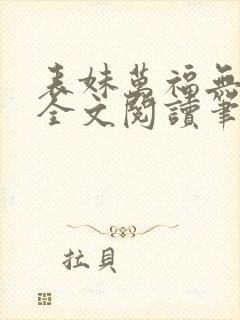 表妹萬福無
全文閱讀筆
拉貝